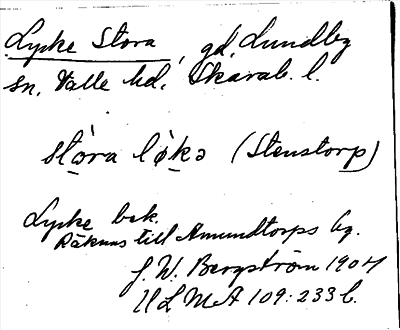 Lycke Stora, gd, Lundby
sn, Valle hd, Skarab. l.
stòra lø̀kə (Stenstorp)
Lycke bek.
Räknas till Amundtorps by.
J. W. Bergström 1904
ULMA 109:233 b.